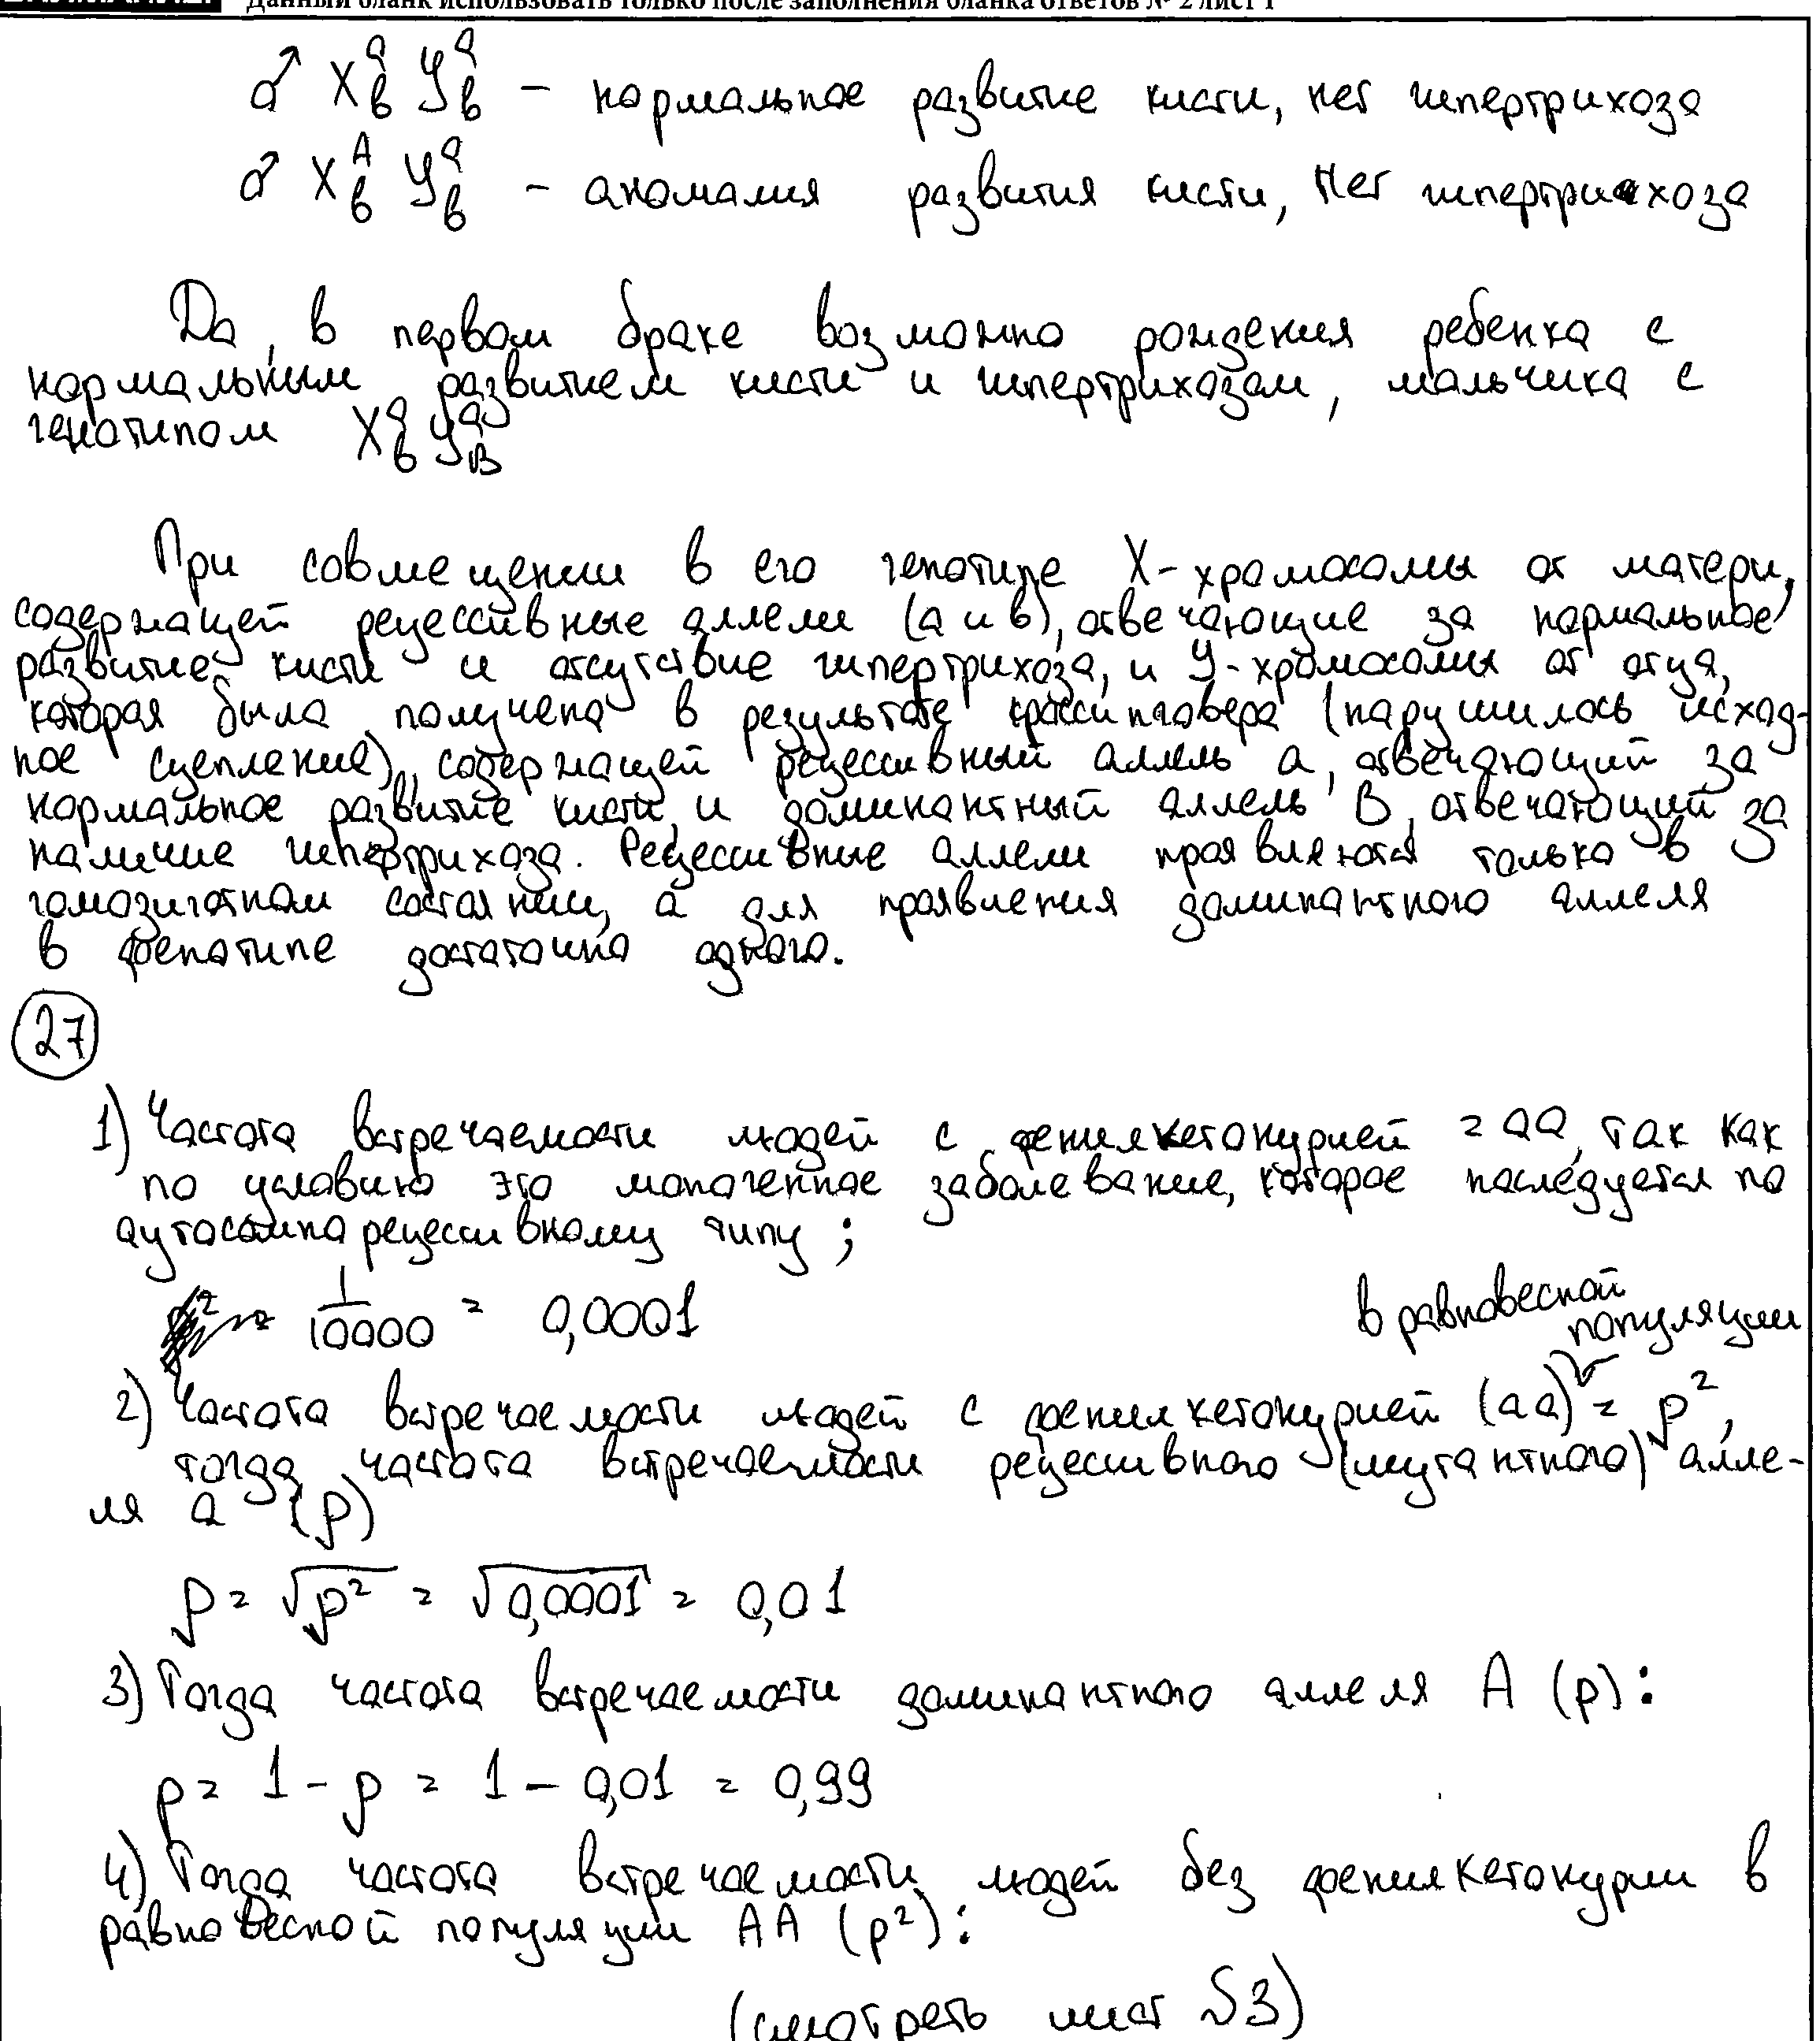 Данный бланк использовать только после заполнения бланка ответов № 2 лист 1
♂ X^a_b Y^a_b – нормальное развитие кисти, нет гипертрихоза
♂ X^A_b Y^a_b – аномалия развития кисти, нет гипертрихоза
Да, в первом браке возможно рождения ребенка с
нормальным развитием кисти и гипертрихозом, мальчика с
генотипом X^a_b Y^a_B
При совмещении в его генотипе X-хромосомы от матери,
содержащей рецессивные аллели (a и b), отвечающие за нормальное
развитие кисти и отсутствие гипертрихоза, и Y-хромосомы от отца,
которая была получена в результате кроссинговера (нарушилось исход-
ное сцепление), содержащей рецессивный аллель a, отвечающий за
нормальное развитие кисти, и доминантный аллель B, отвечающий за
наличие гипертрихоза. Рецессивные аллели проявляются только в
гомозиготном состоянии, а для проявления доминантного аллеля
в фенотипе достаточно одного.
27
1) Частота встречаемости людей с фенилкетонурией = aa, так как
по условию это моногенное заболевание, которое наследуется по
аутосомно рецессивному типу;
1/10000 = 0,0001
в равновесной
популяции
2) Частота встречаемости людей с фенилкетонурией (aa) = p²,
тогда частота встречаемости рецессивного (мутантного) алле-
ля a (p)
p = √p² = √0,0001 = 0,01
3) Тогда частота встречаемости доминантного аллеля A (p):
p = 1 - p = 1 - 0,01 = 0,99
4) Тогда частота встречаемости людей без фенилкетонурии в
равновесной популяции AA (p²):
(смотреть лист №3)